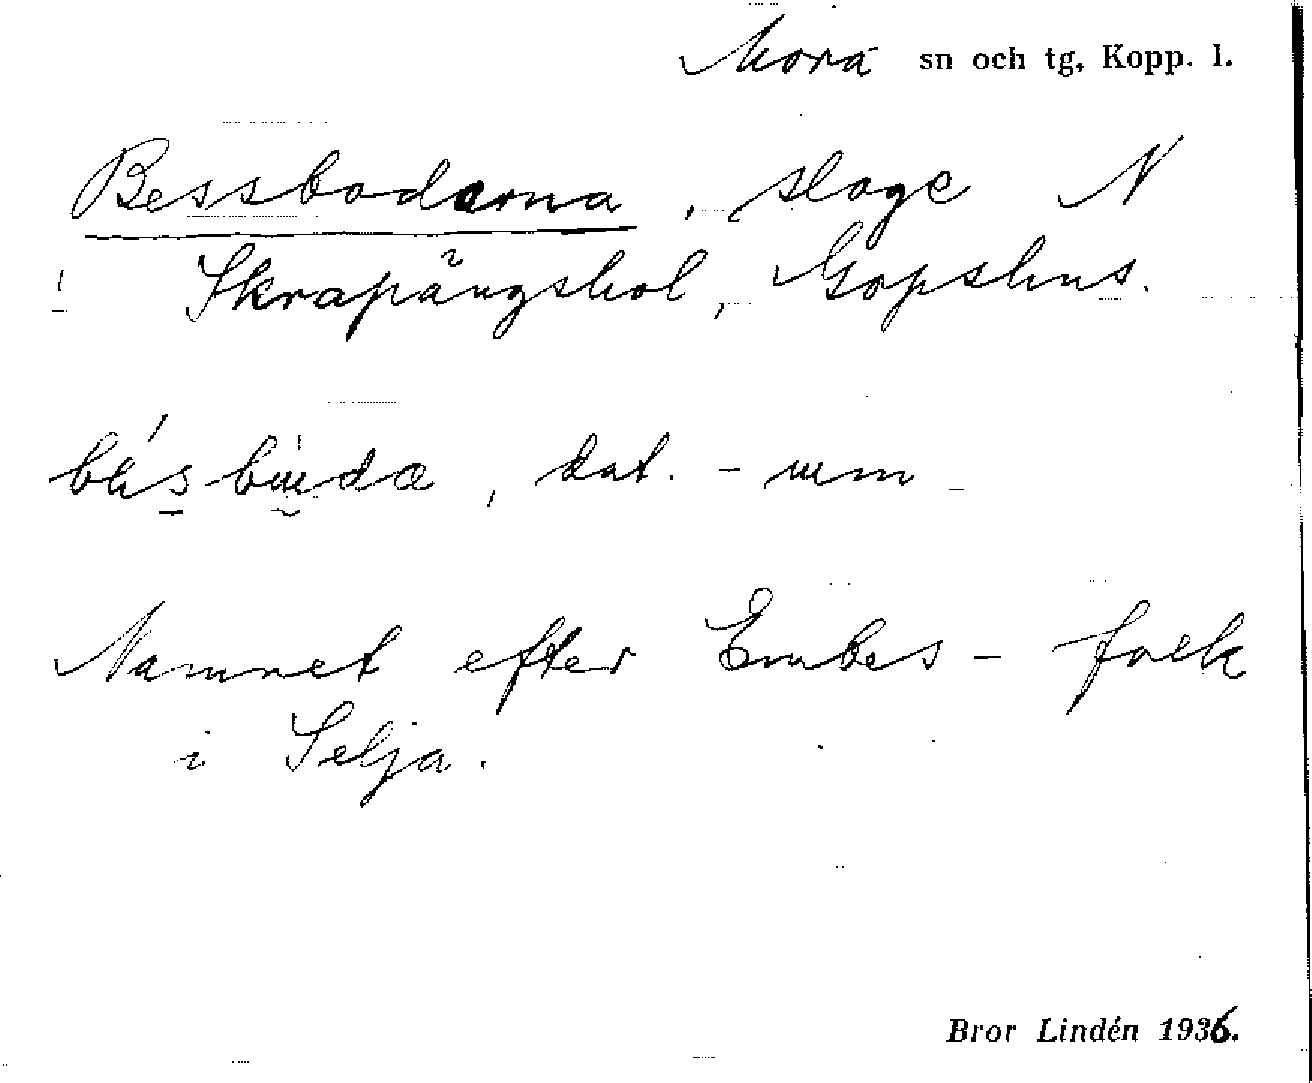 Mora sn och tg, Kopp. l.
Bessbodarna, sloge N
i Skrapängshol, Gopshus.
dat. - um -
Namnet efter Embes - folk
i Selja.
Bror Lindén 1936.